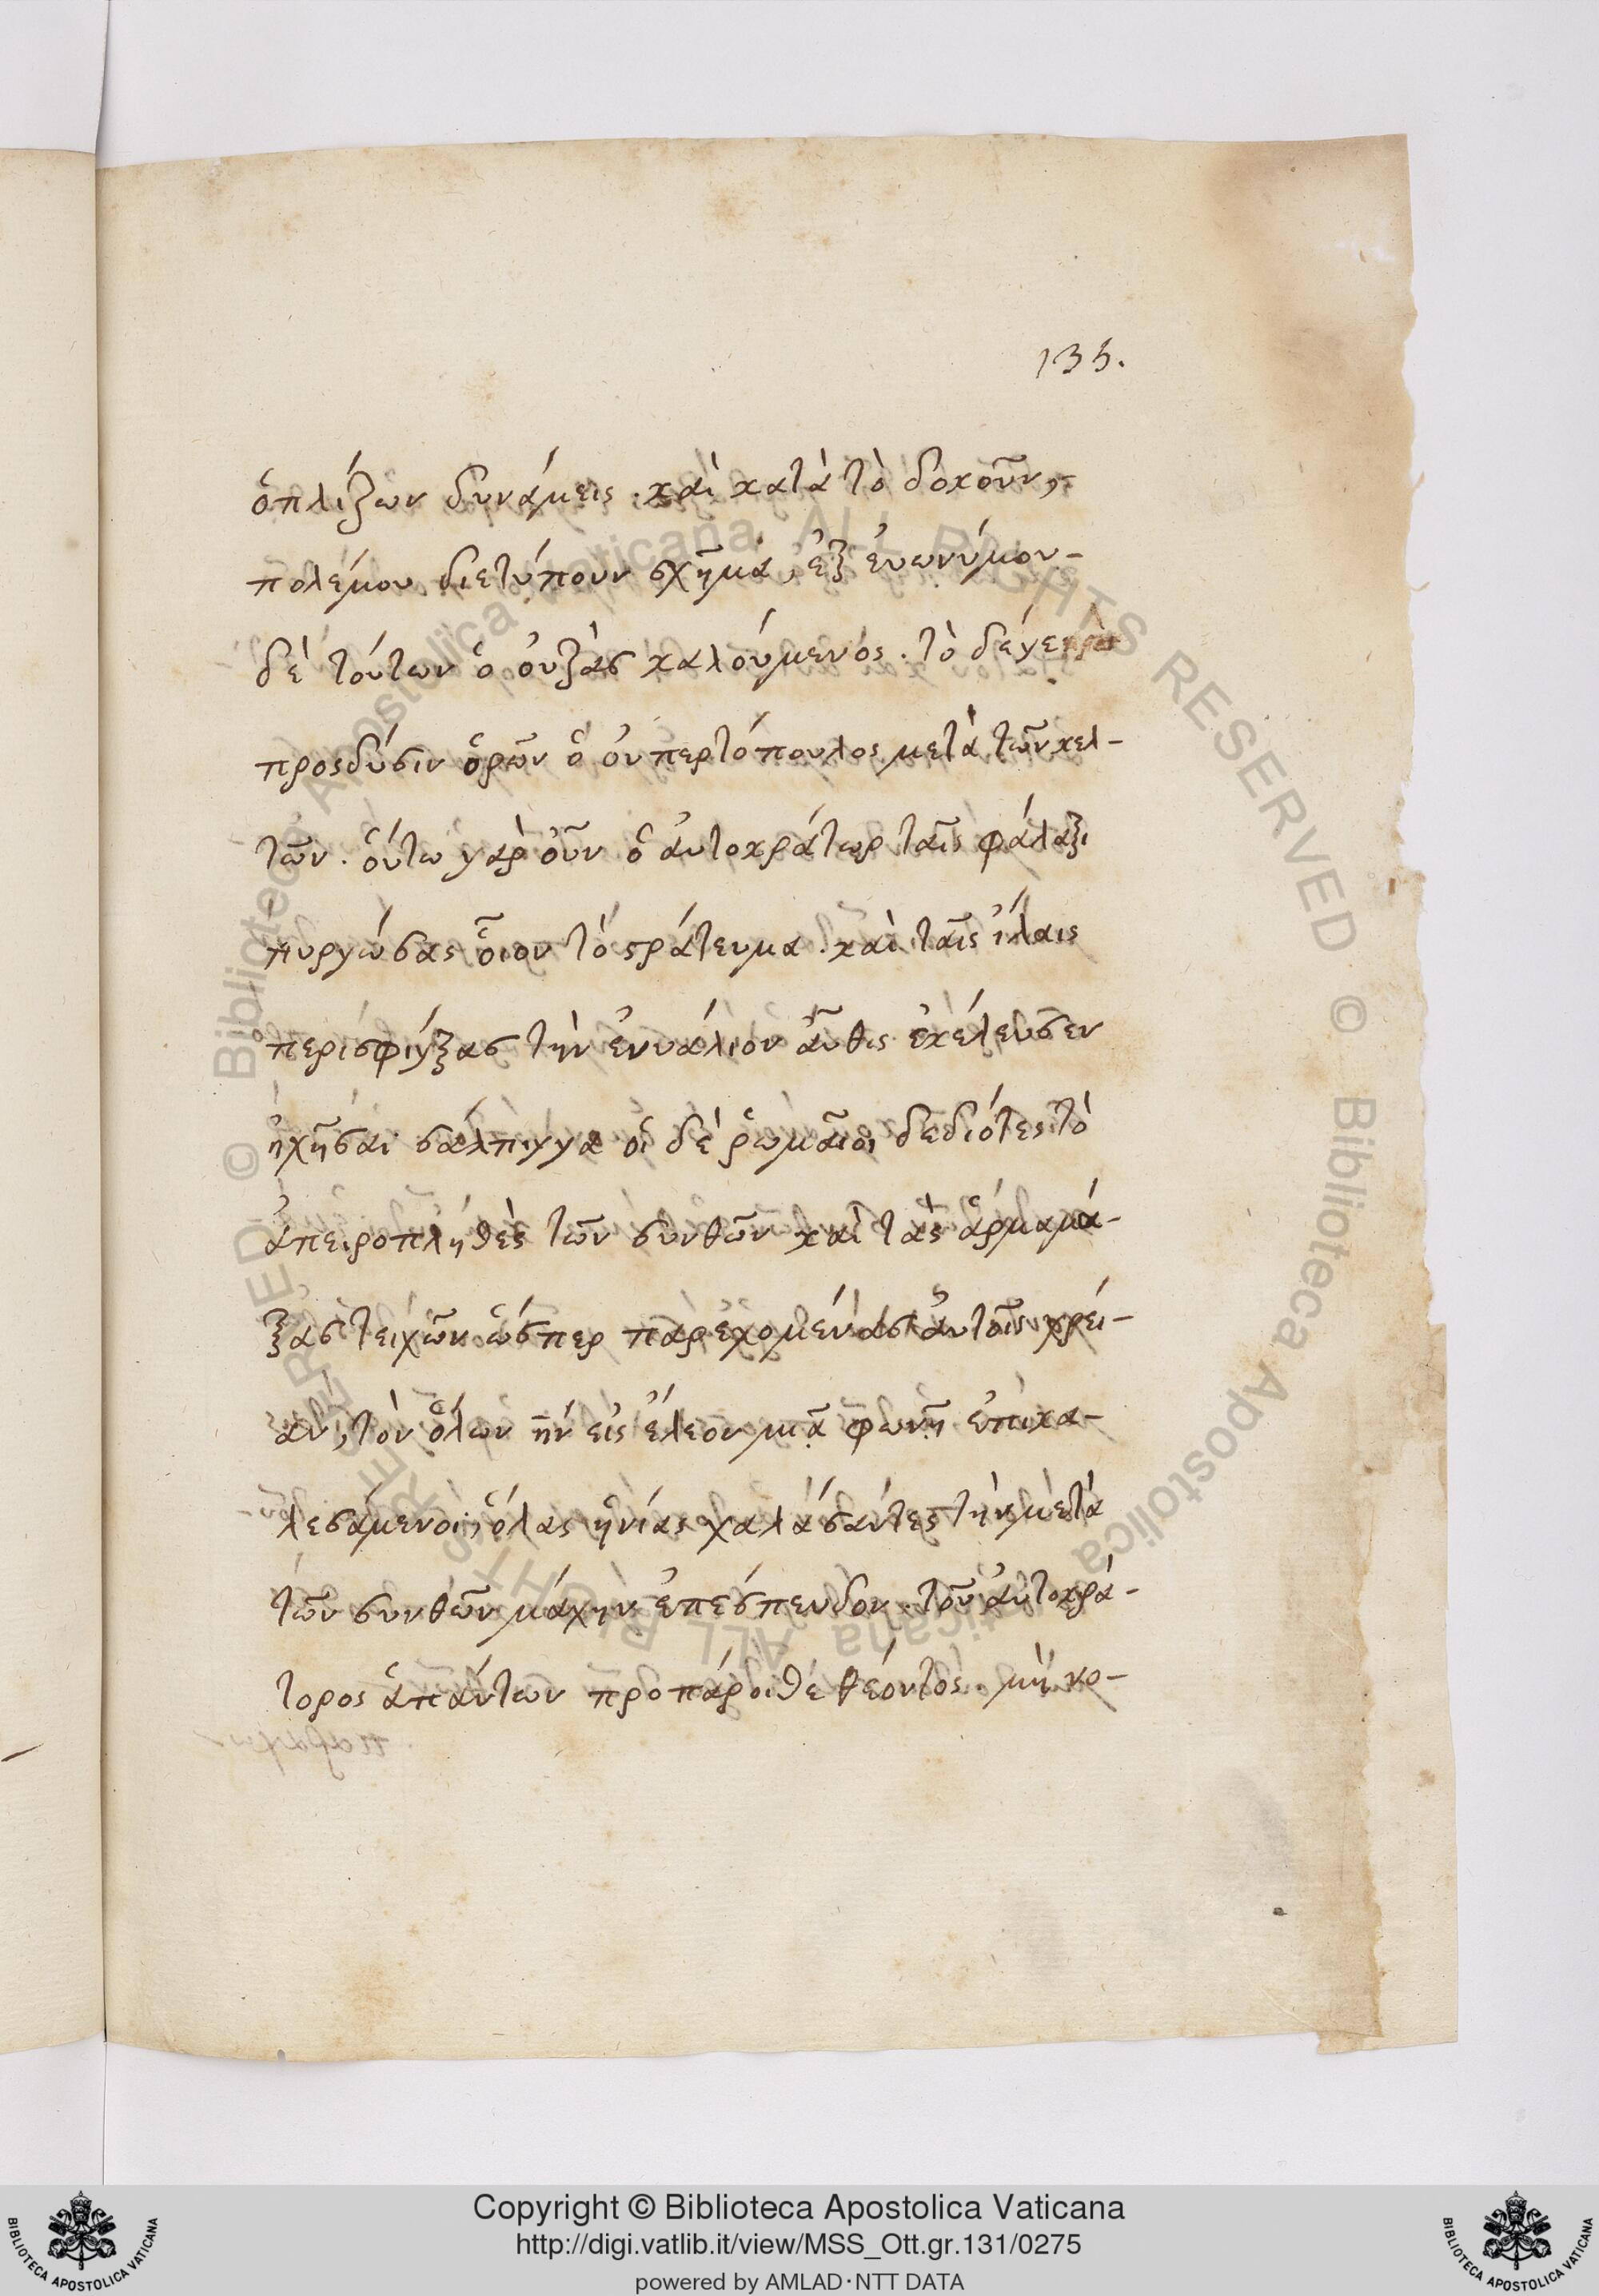 135.
ὁπλίζων δυνάμεις. καὶ κατὰ τὸ δοκοῦν,
πολέμου διετύπουν σχῆμα, ἐξ ἐυωνύμου-
δὲ τούτων ὁ ὀυζὰς καλόυμενός. τὸ δέγε
προςδύσιν ὁρῶν ὁ ὀυπερτόπουλος μετὰ τῶν κελ-
τῶν. ὁύτω γαρ οὖν ὁ ἀυτοκράτωρ ταῖς φάλαξι
πυργώσας ὅιον τὸ στράτευμα. καὶ ταῖς ἴλαις
περισφίγξας τὴν ἐνυάλιον ἆυθις ἐκέλευσεν
ἠχῆσαι σάλπιγγα οἱ δὲ ῥωμαῖοι δεδιότες τὸ
ἀπειροπληθὲς τῶν σκυθῶν καὶ τὰς ἁρμαμά-
ξας τειχῶν ὥσπερ παρεχομένας ἀυτοῖς χρεί-
αν, τὸν ὅλων ἦν εἰς ἔλεον μιᾷ φωνῇ ἐπικα-
λεσάμενοι, ὅλας ἡνίας χαλάσαντες τὴν μετὰ
τῶν σκυθῶν μάχην ἐπέσπευδον. τοῦ ἀυτοκρά-
τορος ἁπάντων προπάροιθε θέοντος. μὴ κο-
Copyright © Biblioteca Apostolica Vaticana
http://digi.vatlib.it/view/MSS_Ott.gr.131/0275
powered by AMLAD·NTT DATA
BIBLIOTECA APOSTOLICA VATICANA
BIBLIOTECA APOSTOLICA VATICANA
© Biblioteca Apostolica Vaticana ALL RIGHTS RESERVED
© Biblioteca Apostolica Vaticana ALL RIGHTS RESERVED